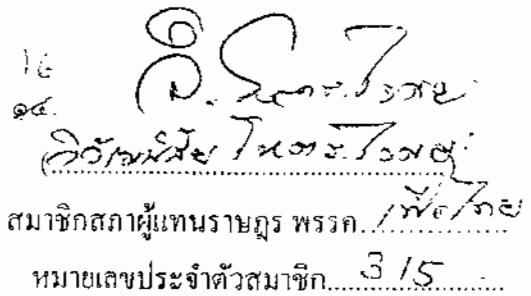 ๑๔.
วิวัฒน์ชัย โหตระไวศยะ
สมาชิกสภาผู้แทนราษฎร พรรค เพื่อไทย
หมายเลขประจำตัวสมาชิก 315